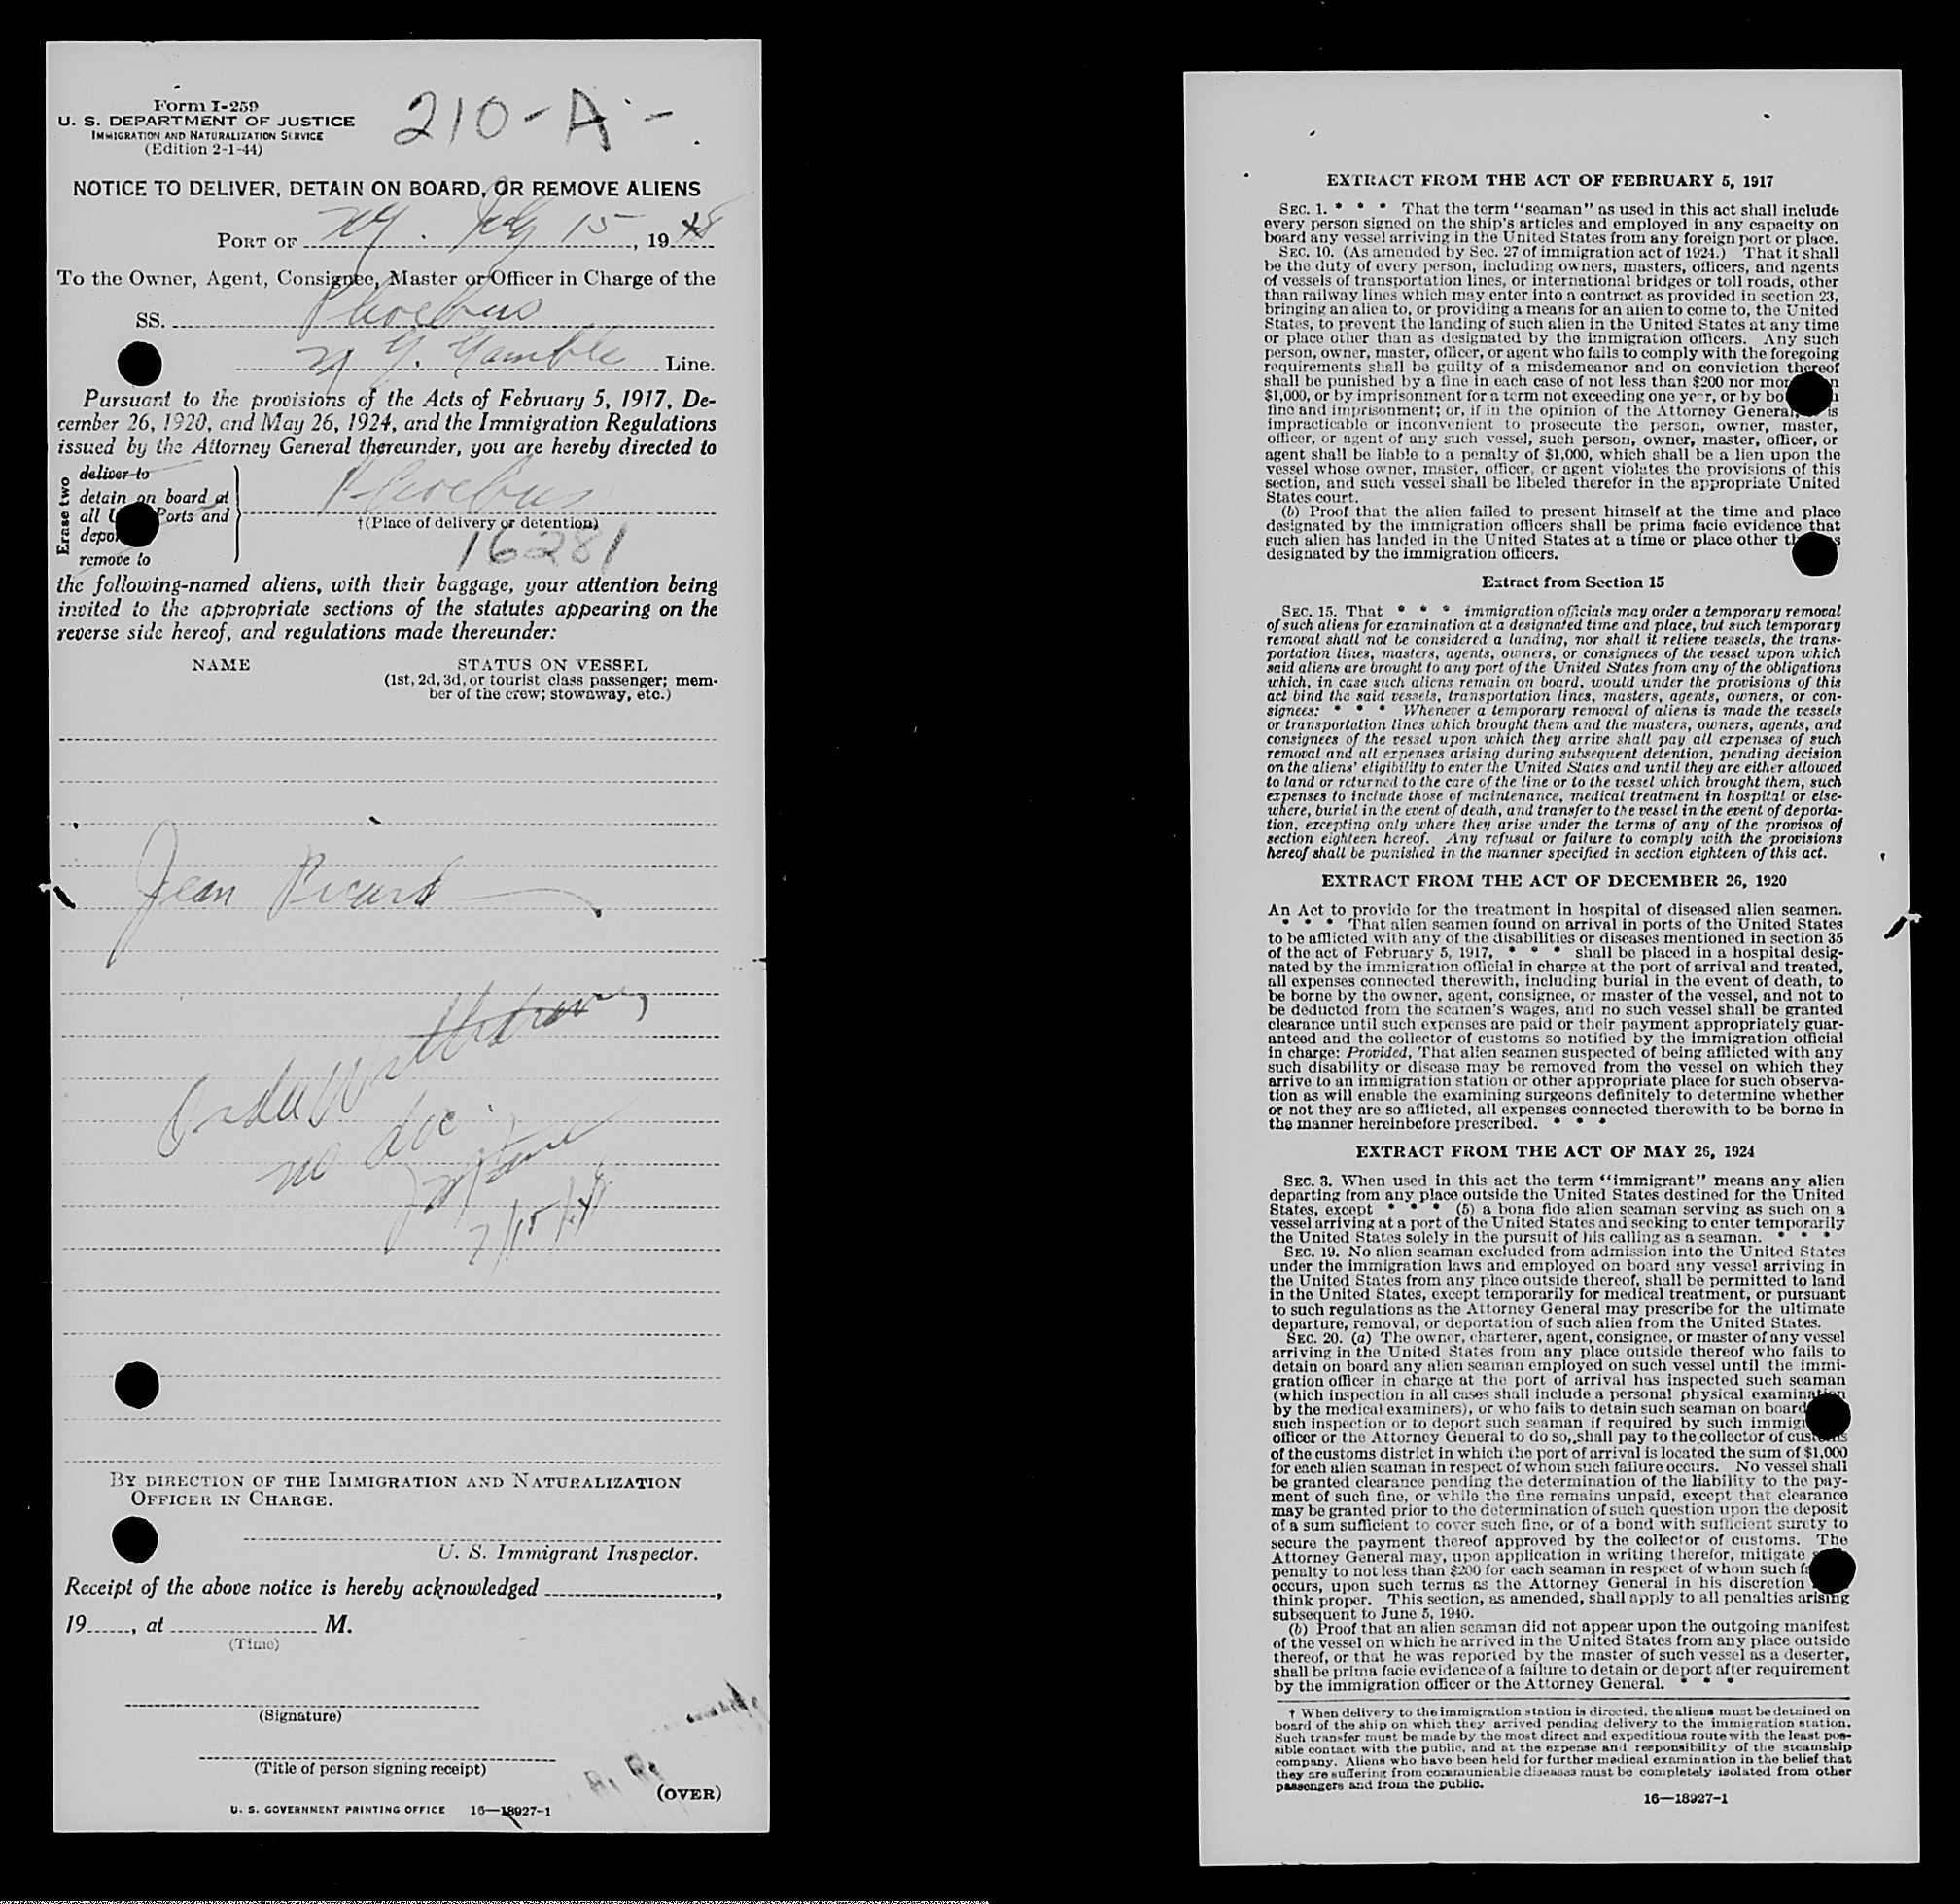 Form I-259
U. S. DEPARTMENT OF JUSTICE
IMMIGRATION AND NATURALIZATION SERVICE
(Edition 2-1-44)
210-A-
NOTICE TO DELIVER, DETAIN ON BOARD, OR REMOVE ALIENS
PORT OF NY. July 15, 1948
To the Owner, Agent, Consignee, Master or Officer in Charge of the
SS. Phoebus
N.Y. Line.
Pursuant to the provisions of the Acts of February 5, 1917, De-
cember 26, 1920, and May 26, 1924, and the Immigration Regulations
issued by the Attorney General thereunder, you are hereby directed to
Erase two
deliver to
detain on board at
all Ports and
remove to
Phoebus
†(Place of delivery or detention)
16281
the following-named aliens, with their baggage, your attention being
invited to the appropriate sections of the statutes appearing on the
reverse side hereof, and regulations made thereunder:
NAME
STATUS ON VESSEL
(1st, 2d, 3d, or tourist class passenger; mem-
ber of the crew; stowaway, etc.)
Jean Picard
Order
no doc
7/15/48
BY DIRECTION OF THE IMMIGRATION AND NATURALIZATION
OFFICER IN CHARGE.
U. S. Immigrant Inspector.
Receipt of the above notice is hereby acknowledged ,
19 , at M.
(Time)
(Signature)
(Title of person signing receipt)
(OVER)
U. S. GOVERNMENT PRINTING OFFICE 16—18927-1
EXTRACT FROM THE ACT OF FEBRUARY 5, 1917
SEC. 1. * * * That the term "seaman" as used in this act shall include
every person signed on the ship's articles and employed in any capacity on
board any vessel arriving in the United States from any foreign port or place.
SEC. 10. (As amended by Sec. 27 of immigration act of 1924.) That it shall
be the duty of every person, including owners, masters, officers, and agents
of vessels of transportation lines, or international bridges or toll roads, other
than railway lines which may enter into a contract as provided in section 23,
bringing an alien to, or providing a means for an alien to come to, the United
States, to prevent the landing of such alien in the United States at any time
or place other than as designated by the immigration officers. Any such
person, owner, master, officer, or agent who fails to comply with the foregoing
requirements shall be guilty of a misdemeanor and on conviction thereof
shall be punished by a fine in each case of not less than $200 nor
$1,000, or by imprisonment for a term not exceeding one year, or by
fine and imprisonment; or, if in the opinion of the Attorney General, is
impracticable or inconvenient to prosecute the person, owner, master,
officer, or agent of any such vessel, such person, owner, master, officer, or
agent shall be liable to a penalty of $1,000, which shall be a lien upon the
vessel whose owner, master, officer, or agent violates the provisions of this
section, and such vessel shall be libeled therefor in the appropriate United
States court.
(b) Proof that the alien failed to present himself at the time and place
designated by the immigration officers shall be prima facie evidence that
such alien has landed in the United States at a time or place other
designated by the immigration officers.
Extract from Section 15
SEC. 15. That * * * immigration officials may order a temporary removal
of such aliens for examination at a designated time and place, but such temporary
removal shall not be considered a landing, nor shall it relieve vessels, the trans-
portation lines, masters, agents, owners, or consignees of the vessel upon which
said aliens are brought to any port of the United States from any of the obligations
which, in case such aliens remain on board, would under the provisions of this
act bind the said vessels, transportation lines, masters, agents, owners, or con-
signees: * * * Whenever a temporary removal of aliens is made the vessels
or transportation lines which brought them and the masters, owners, agents, and
consignees of the vessel upon which they arrive shall pay all expenses of such
removal and all expenses arising during subsequent detention, pending decision
on the aliens' eligibility to enter the United States and until they are either allowed
to land or returned to the care of the line or to the vessel which brought them, such
expenses to include those of maintenance, medical treatment in hospital or else-
where, burial in the event of death, and transfer to the vessel in the event of deporta-
tion, excepting only where they arise under the terms of any of the provisos of
section eighteen hereof. Any refusal or failure to comply with the provisions
hereof shall be punished in the manner specified in section eighteen of this act.
EXTRACT FROM THE ACT OF DECEMBER 26, 1920
An Act to provide for the treatment in hospital of diseased alien seamen.
* * * That alien seamen found on arrival in ports of the United States
to be afflicted with any of the disabilities or diseases mentioned in section 35
of the act of February 5, 1917, * * * shall be placed in a hospital desig-
nated by the immigration official in charge at the port of arrival and treated,
all expenses connected therewith, including burial in the event of death, to
be borne by the owner, agent, consignee, or master of the vessel, and not to
be deducted from the seamen's wages, and no such vessel shall be granted
clearance until such expenses are paid or their payment appropriately guar-
anteed and the collector of customs so notified by the immigration official
in charge: Provided, That alien seamen suspected of being afflicted with any
such disability or disease may be removed from the vessel on which they
arrive to an immigration station or other appropriate place for such observa-
tion as will enable the examining surgeons definitely to determine whether
or not they are so afflicted, all expenses connected therewith to be borne in
the manner hereinbefore prescribed. * * *
EXTRACT FROM THE ACT OF MAY 26, 1924
SEC. 3. When used in this act the term "immigrant" means any alien
departing from any place outside the United States destined for the United
States, except * * * (5) a bona fide alien seaman serving as such on a
vessel arriving at a port of the United States and seeking to enter temporarily
the United States solely in the pursuit of his calling as a seaman. * * *
SEC. 19. No alien seaman excluded from admission into the United States
under the immigration laws and employed on board any vessel arriving in
the United States from any place outside thereof, shall be permitted to land
in the United States, except temporarily for medical treatment, or pursuant
to such regulations as the Attorney General may prescribe for the ultimate
departure, removal, or deportation of such alien from the United States.
SEC. 20. (a) The owner, charterer, agent, consignee, or master of any vessel
arriving in the United States from any place outside thereof who fails to
detain on board any alien seaman employed on such vessel until the immi-
gration officer in charge at the port of arrival has inspected such seaman
(which inspection in all cases shall include a personal physical examination
by the medical examiners), or who fails to detain such seaman on board
such inspection or to deport such seaman if required by such
officer or the Attorney General to do so, shall pay to the collector of customs
of the customs district in which the port of arrival is located the sum of $1,000
for each alien seaman in respect of whom such failure occurs. No vessel shall
be granted clearance pending the determination of the liability to the pay-
ment of such fine, or while the fine remains unpaid, except that clearance
may be granted prior to the determination of such question upon the deposit
of a sum sufficient to cover such fine, or of a bond with sufficient surety to
secure the payment thereof approved by the collector of customs. The
Attorney General may, upon application in writing therefor, mitigate
penalty to not less than $200 for each seaman in respect of whom such
occurs, upon such terms as the Attorney General in his discretion
think proper. This section, as amended, shall apply to all penalties arising
subsequent to June 5, 1940.
(b) Proof that an alien seaman did not appear upon the outgoing manifest
of the vessel on which he arrived in the United States from any place outside
thereof, or that he was reported by the master of such vessel as a deserter,
shall be prima facie evidence of a failure to detain or deport after requirement
by the immigration officer or the Attorney General. * * *
† When delivery to the immigration station is directed, the aliens must be detained on
board of the ship on which they arrived pending delivery to the immigration station.
Such transfer must be made by the most direct and expeditious route with the least pos-
sible contact with the public, and at the expense and responsibility of the steamship
company. Aliens who have been held for further medical examination in the belief that
they are suffering from communicable diseases must be completely isolated from other
passengers and from the public.
16—18927-1